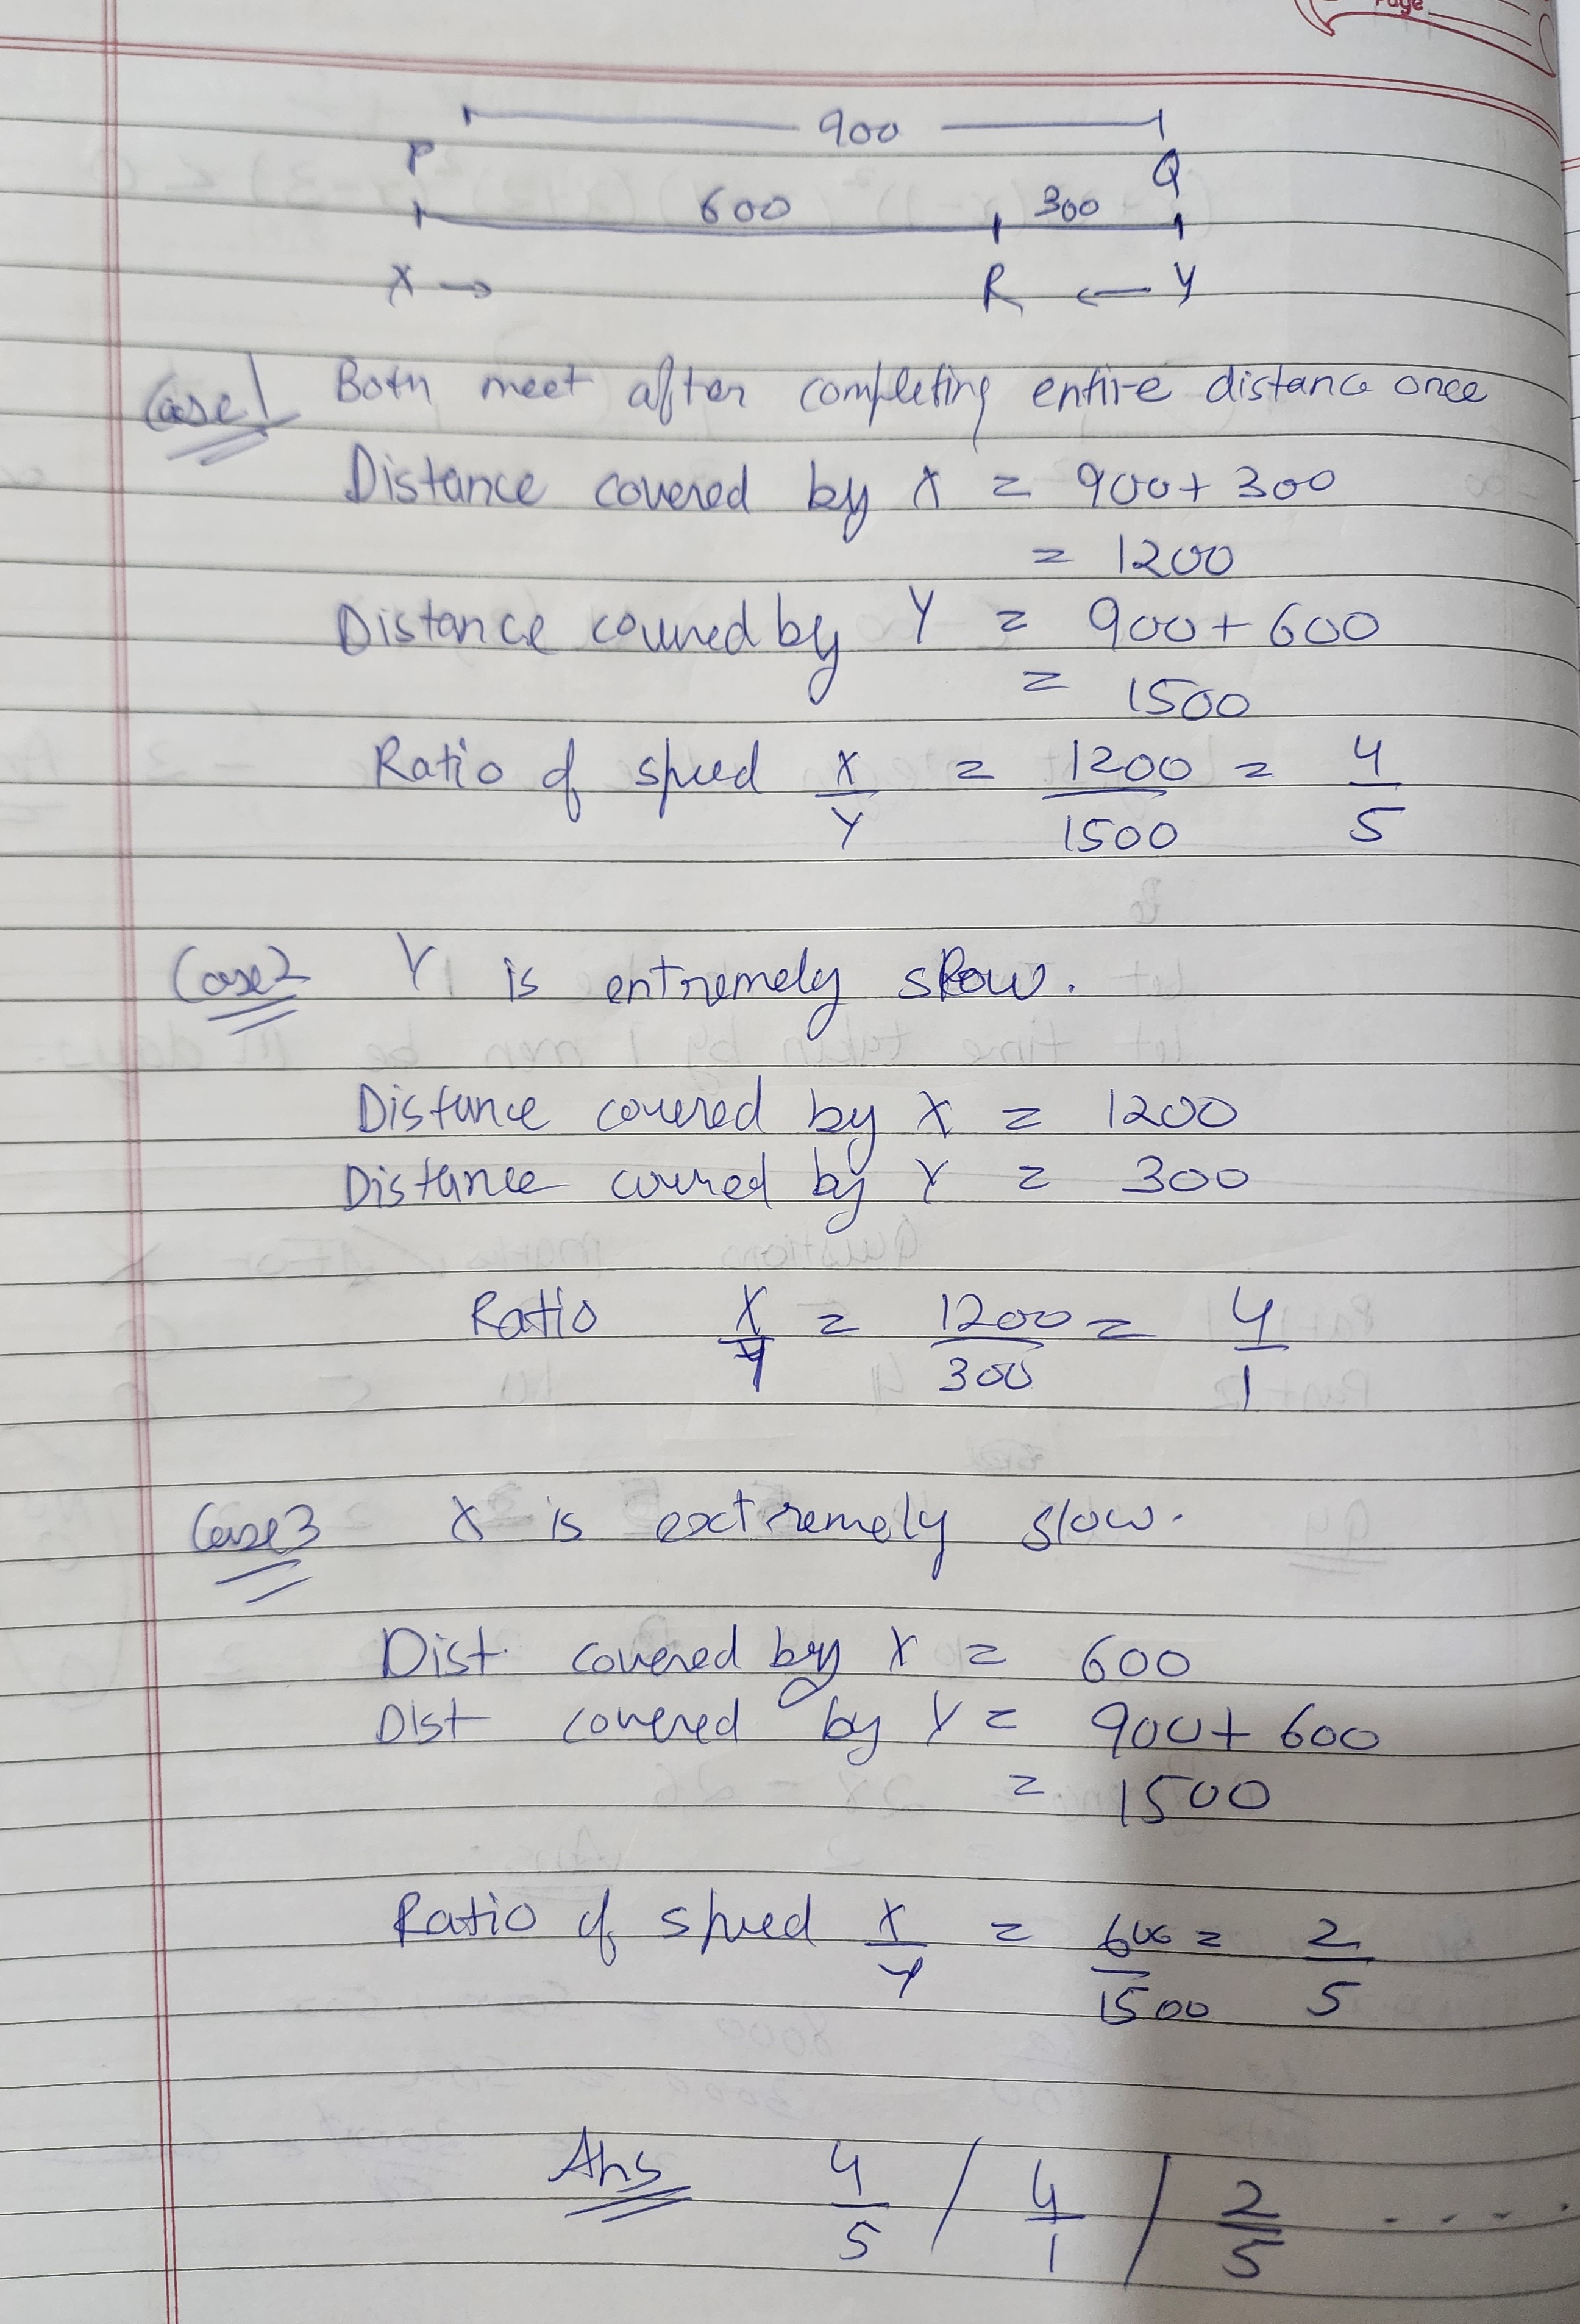 Page
900
P Q
600 300
X → R ← Y
Case 1 Both meet after completing entire distance once
Distance covered by X = 900 + 300
= 1200
Distance covered by Y = 900 + 600
= 1500
Ratio of speed X/Y = 1200/1500 = 4/5
Case 2 Y is entremely slow.
Distance covered by X = 1200
Distance covered by Y = 300
Ratio X/Y = 1200/300 = 4/1
Case 3 X is extremely slow.
Dist. covered by X = 600
Dist covered by Y = 900 + 600
= 1500
Ratio of speed X/Y = 600/1500 = 2/5
Ans 4/5 / 4/1 / 2/5 ....